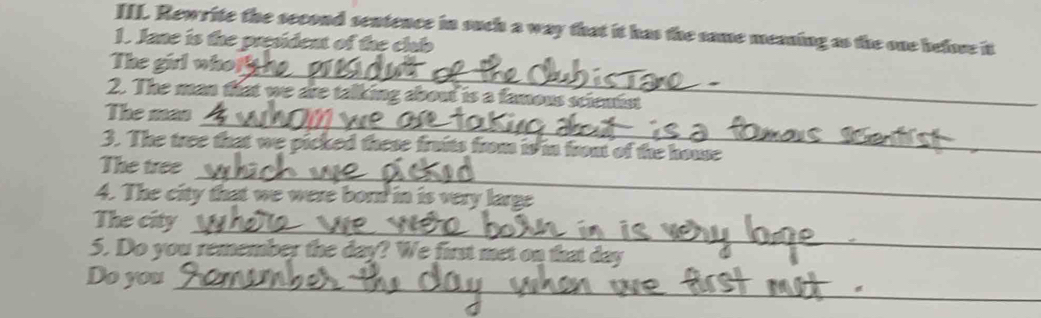 III. Rewrite the second sentence in such a way that it has the same meaning as the one before it
1. Jane is the president of the club
The girl who is the president of the club is Jane.
2. The man that we are talking about is a famous scientist
The man whom we are taking about is a famous scientist.
3. The tree that we picked these fruits from is in front of the house
The tree which we picked
4. The city that we were born in is very large
The city where we were born in is very large.
5. Do you remember the day? We first met on that day
Do you remember the day when we first met.